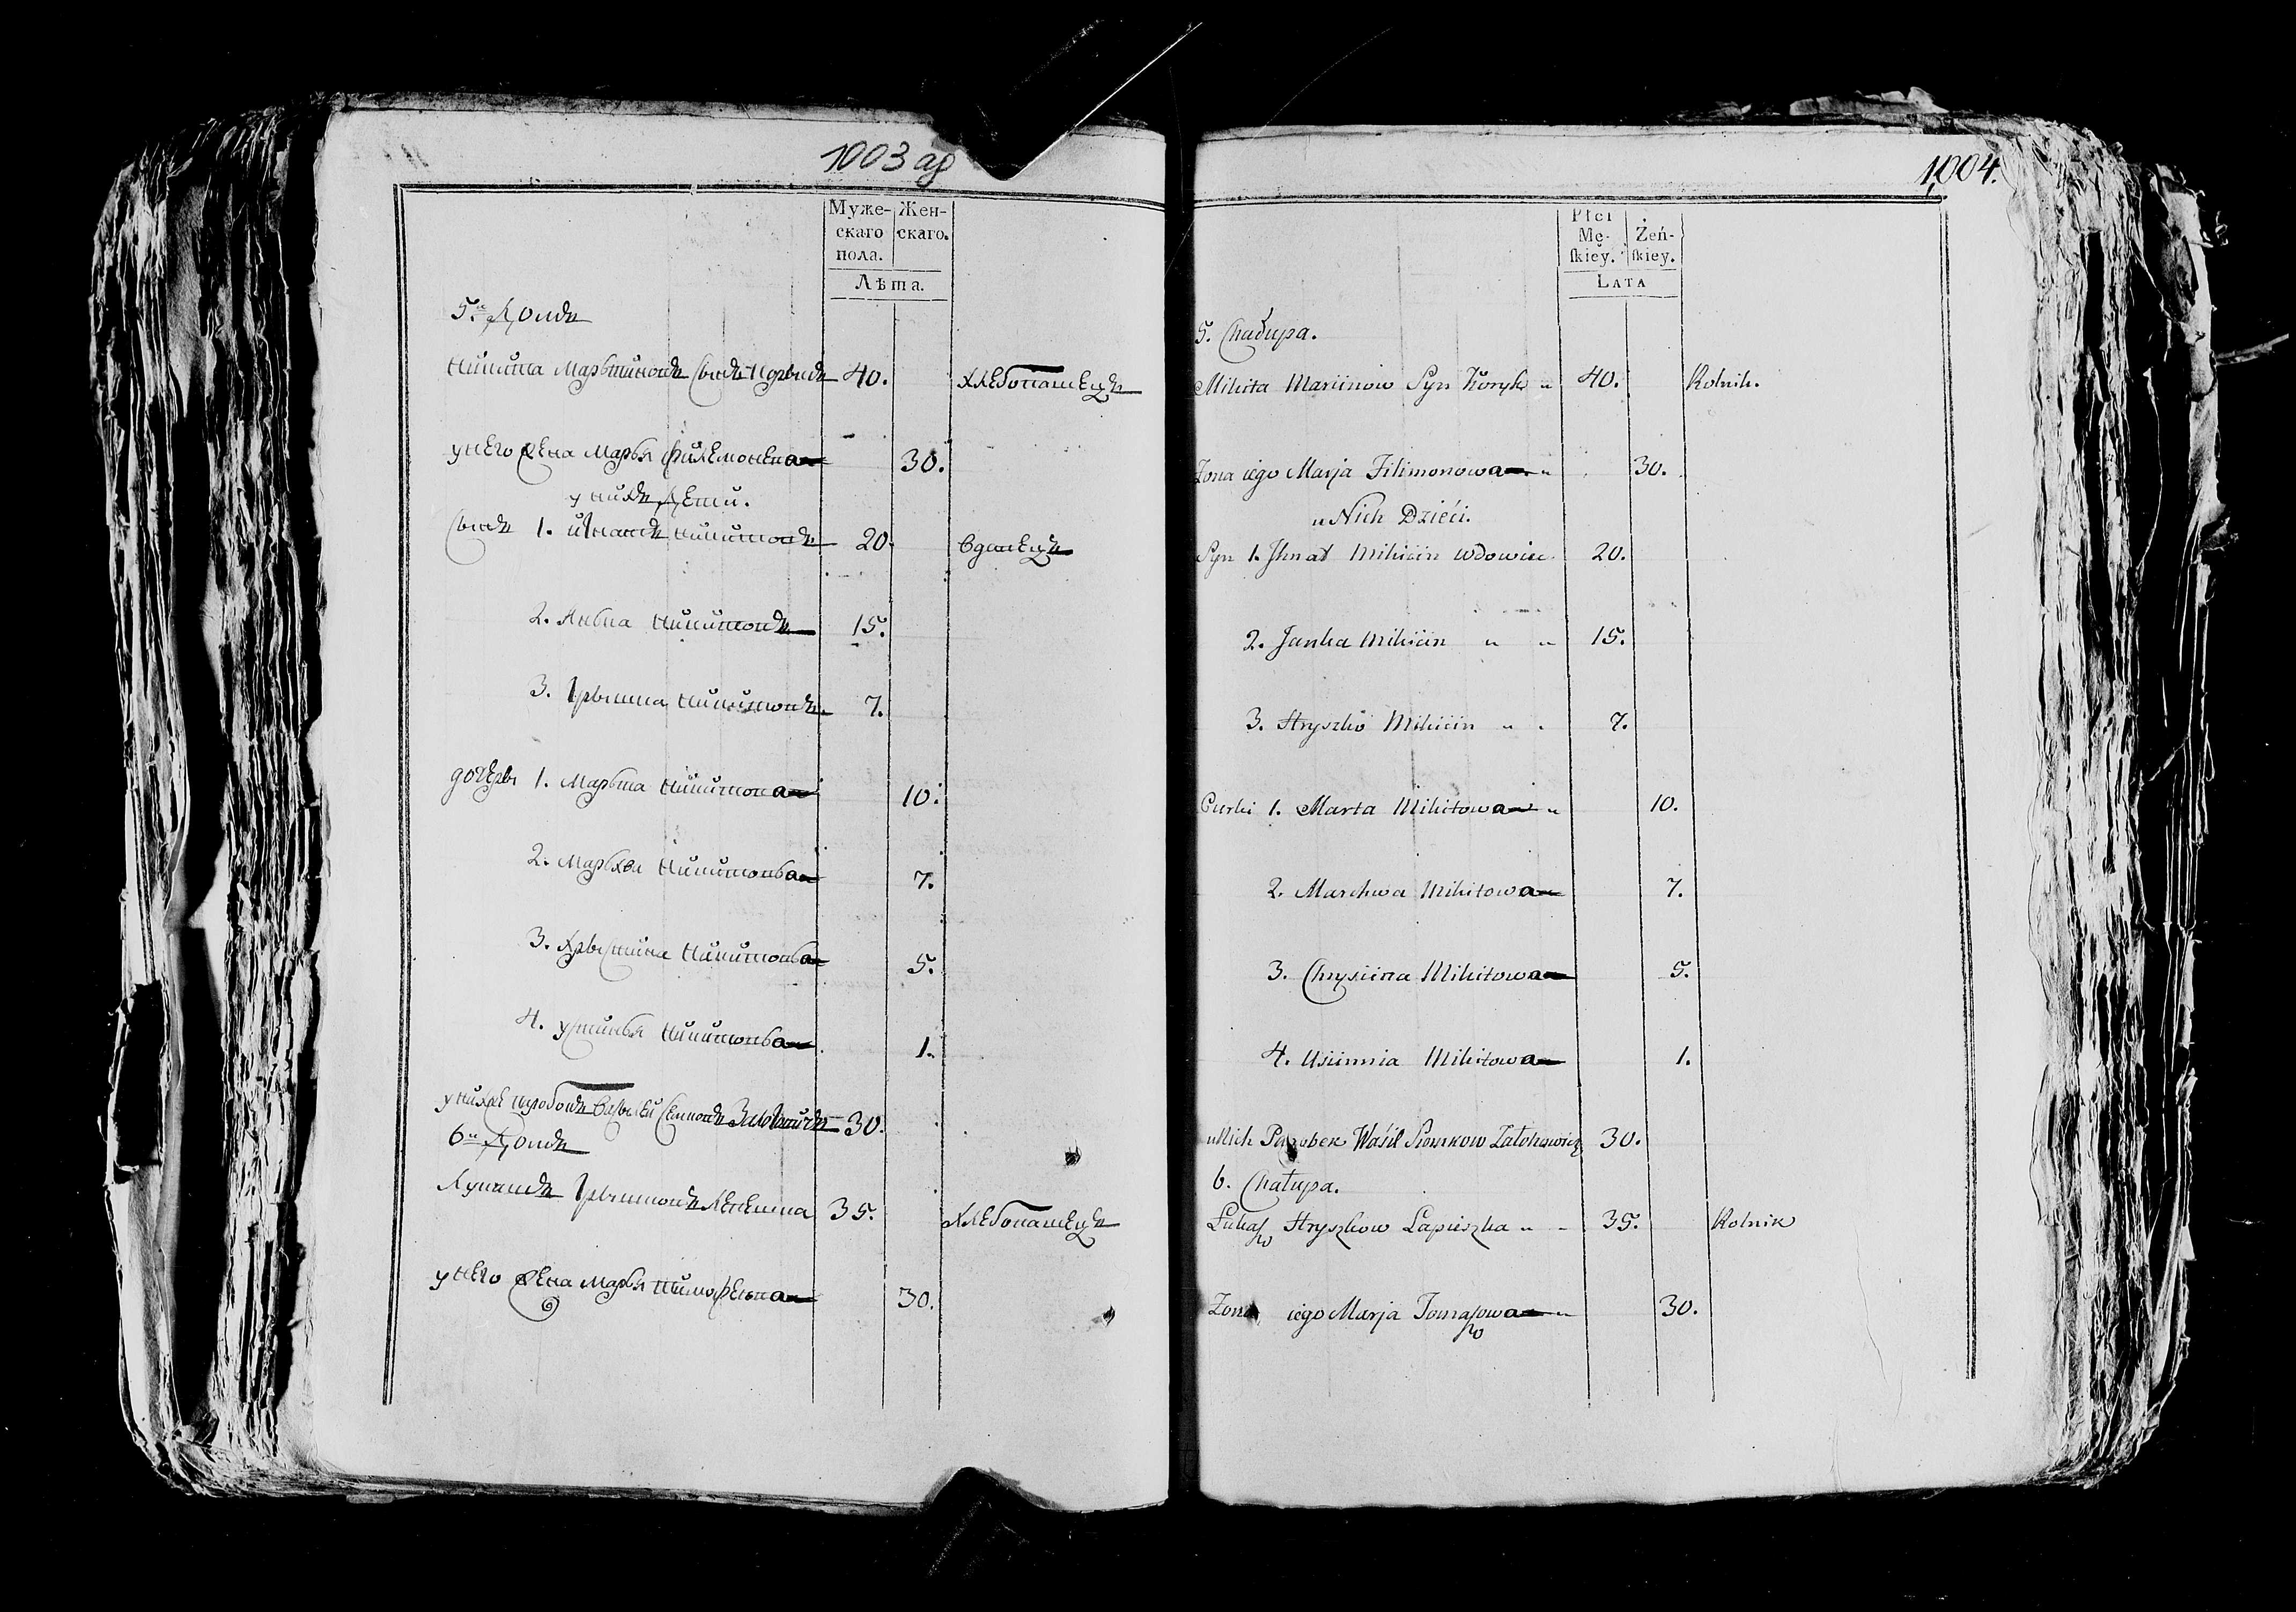 1003 ад
Муже-
скаго
пола.
Жен-
скаго.
Лѣта.
5.й Домъ
Микита Марьтиновъ Сынъ 40. Хлебопашецъ
у него Жена Марья Филемонова 30.
у нихъ Дети.
Сынъ 1. Игнатъ Микитовъ 20. вдовецъ
2. Янька Микитовъ 15.
3. Грышка Микитовъ 7.
дочеры 1. Марьта Микитова 10.
2. Марьхва Микитовьа 7.
3. Хрыстина Микитовьа 5.
4. Устинья Микитовьа 1.
у нихъ паробокъ Василей 30.
6й Домъ
Лукашъ Грышковъ 35. Хлебопашецъ
у него Жена Марья 30.
1004.
Płci
Mę-
skiey.
Żeń-
skiey.
LATA
5. Chałupa.
Mikita Marcinow Syn Koryk „ 40. Rolnik.
Zona iego Marja Filimonowa „ 30.
u Nich Dzieci.
Syn 1. Jhnat Mikicin Wdowiec 20.
2. Janka Mikicin „ „ 15.
3. Hryszko Mikicin „ „ 7.
Curki 1. Marta Mikitowa „ 10.
2. Marchwa Mikitowa 7.
3. Chryscina Mikitowa 5.
4. Uscinnia Mikitowa 1.
u Nich Parobek Waśil Siomkow 30.
6. Chałupa.
Łukasz Hryszkow Łapieszka „ „ 35. Rolnik
Zona iego Marja Tomaszowa „ 30.